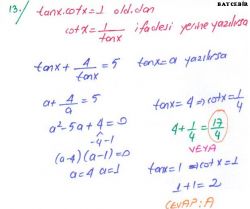 BAYCEBİR
13./ tanx.cotx=1 old.dan
cotx=1/tanx ifadesi yerine yazılırsa
tanx+4/tanx=5 tanx=a yazılırsa
a+4/a=5
tanx=4⇒cotx=1/4
a²-5a+4=0
-4-1
4+1/4=17/4
VEYA
(a-4)(a-1)=0
a=4 a=1
tanx=1⇒cotx=1
1+1=2
CEVAP:A